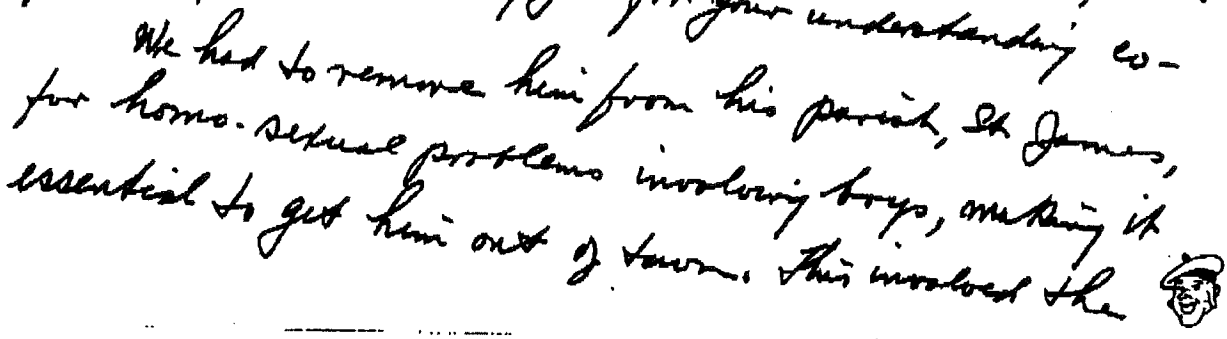 for your understanding co-
We had to remove him from his parish, St James,
for homo-sexual problems involving boys, making it
essential to get him out of town. This involved the